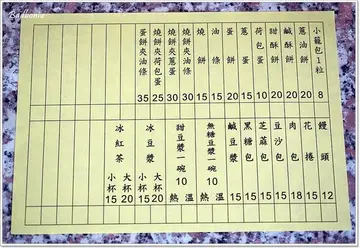 Badbonie
小籠包1粒 8
蔥油餅 20
鹹酥餅 20
甜酥餅 20
荷包蛋 10
蔥蛋 20
蛋餅 20
油條 15
燒餅 15
燒餅夾油條 30
燒餅夾蔥蛋 30
燒餅夾荷包蛋 25
蛋餅夾油條 35
饅頭 12
花捲 15
肉包 18
豆沙包 15
芝麻包 15
黑糖包
鹹豆漿
無糖豆漿一碗 10 溫
甜豆漿一碗 10 熱
冰豆漿 大杯20
小杯15
冰紅茶 大杯20
小杯15